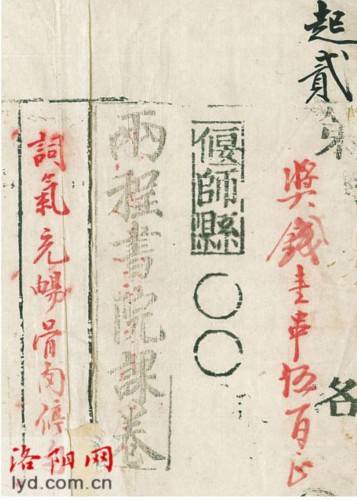 起貳
獎錢壹串伍百正
偃師縣〇〇
兩程書院課卷
詞氣充暢骨肉停
洛阳网
lyd.com.cn